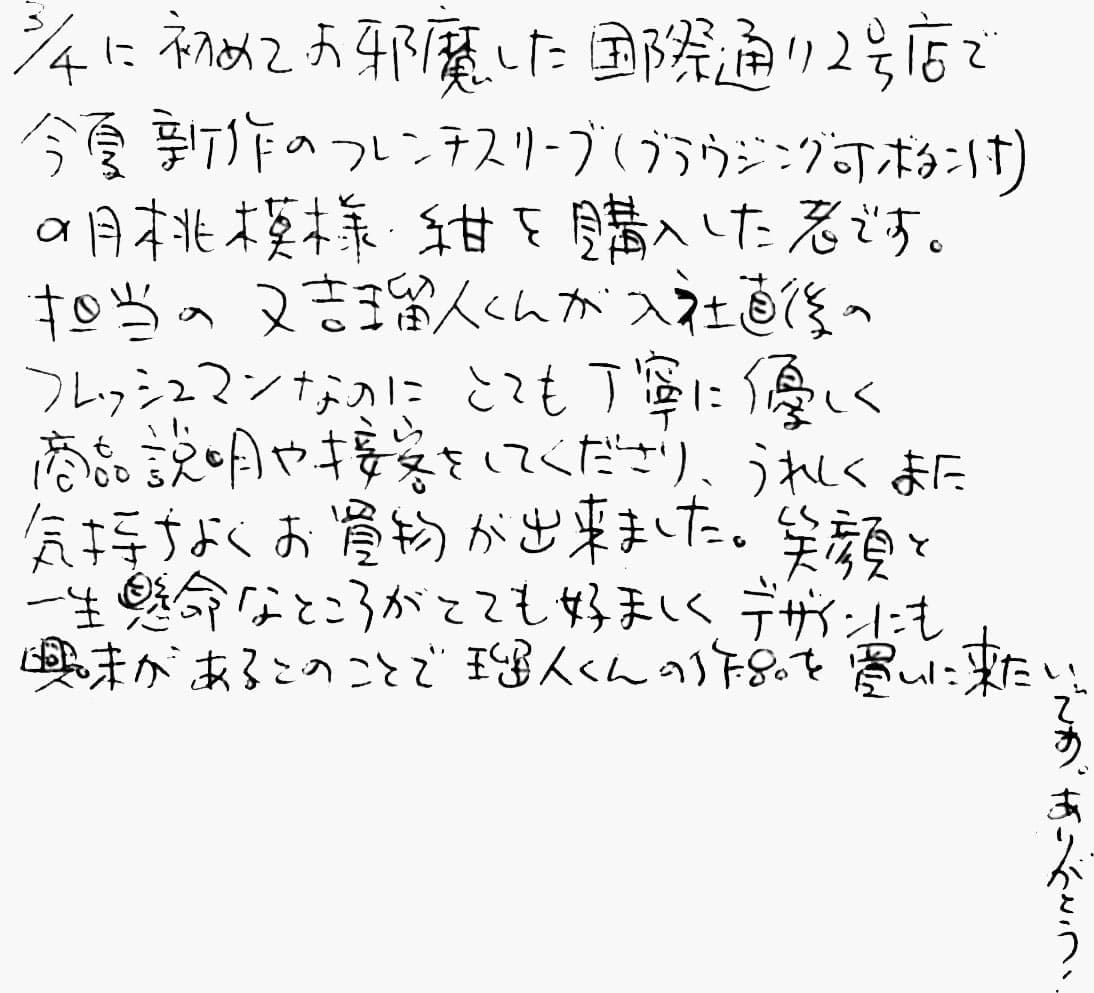 3/4に初めてお邪魔した国際通り2号店で
今夏新作のフレンチスリーブ(ブラウジング可ボタン付)
の月桃模様・紺を購入した者です。
担当の又吉瑠人くんが入社直後の
フレッシュマンなのにとても丁寧に優しく
商品説明や接客をしてくださり、うれしくまた
気持ちよくお買物が出来ました。笑顔と
一生懸命なところがとても好ましくデザインにも
興味があるとのことで瑠人くんの作品を買いに来たい
です。ありがとう!